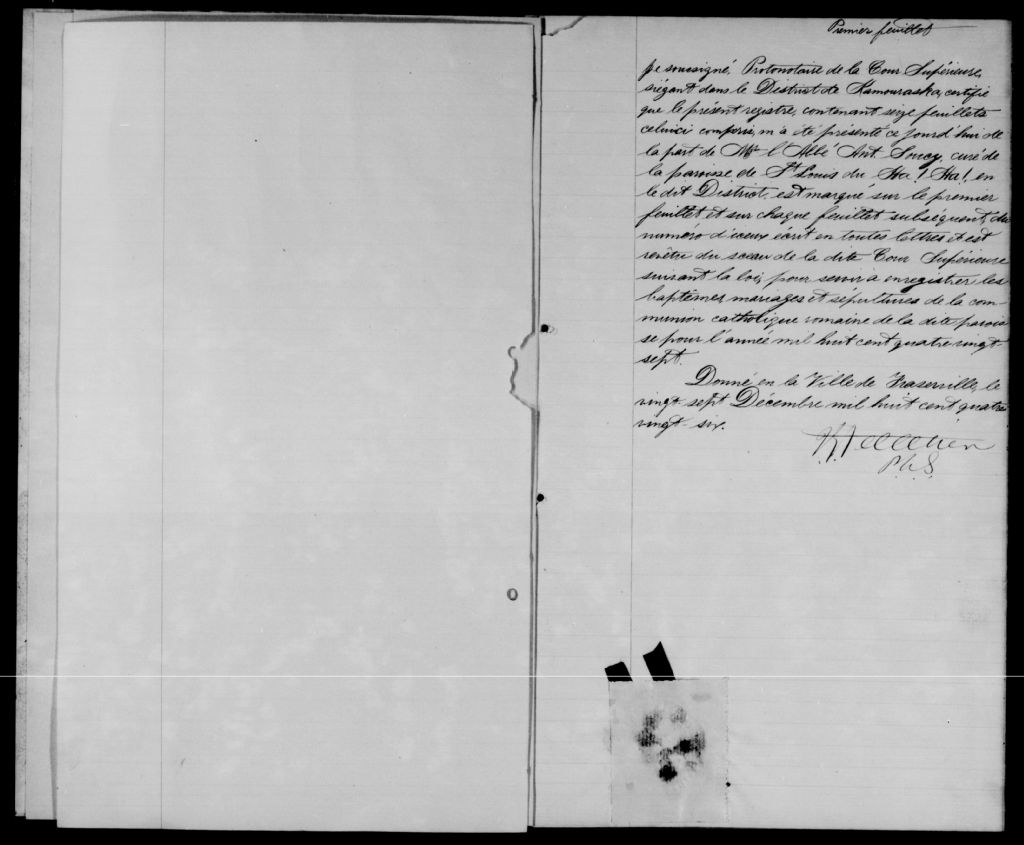 Premier feuillet
Je soussigné, Protonotaire de la Cour Supérieure,
siégant dans le District de Kamouraska, certifie
que le présent registre, contenant seize feuillets
celuici compris, m'a été présenté ce jourd'hui de
la part de Mr. l'Abbé Ant. Soucy, curé de
la paroisse de St Louis du Ha! Ha!, en
le dit District, est marqué sur le premier
feuillet et sur chaque feuillet subséquent, du
numéro d'iceux écrit en toutes lettres et est
revêtu du sceau de la dite Cour Supérieure
suivant la loi, pour servir à enregistrer les
baptêmes mariages et sépultures de la com-
munion catholique romaine de la dite parois
se pour l'année mil huit cent quatre vingt-
sept.
Donné en la Ville de Fraserville, le
vingt sept Décembre mil huit cent quatre
vingt-six.
P.C.S.